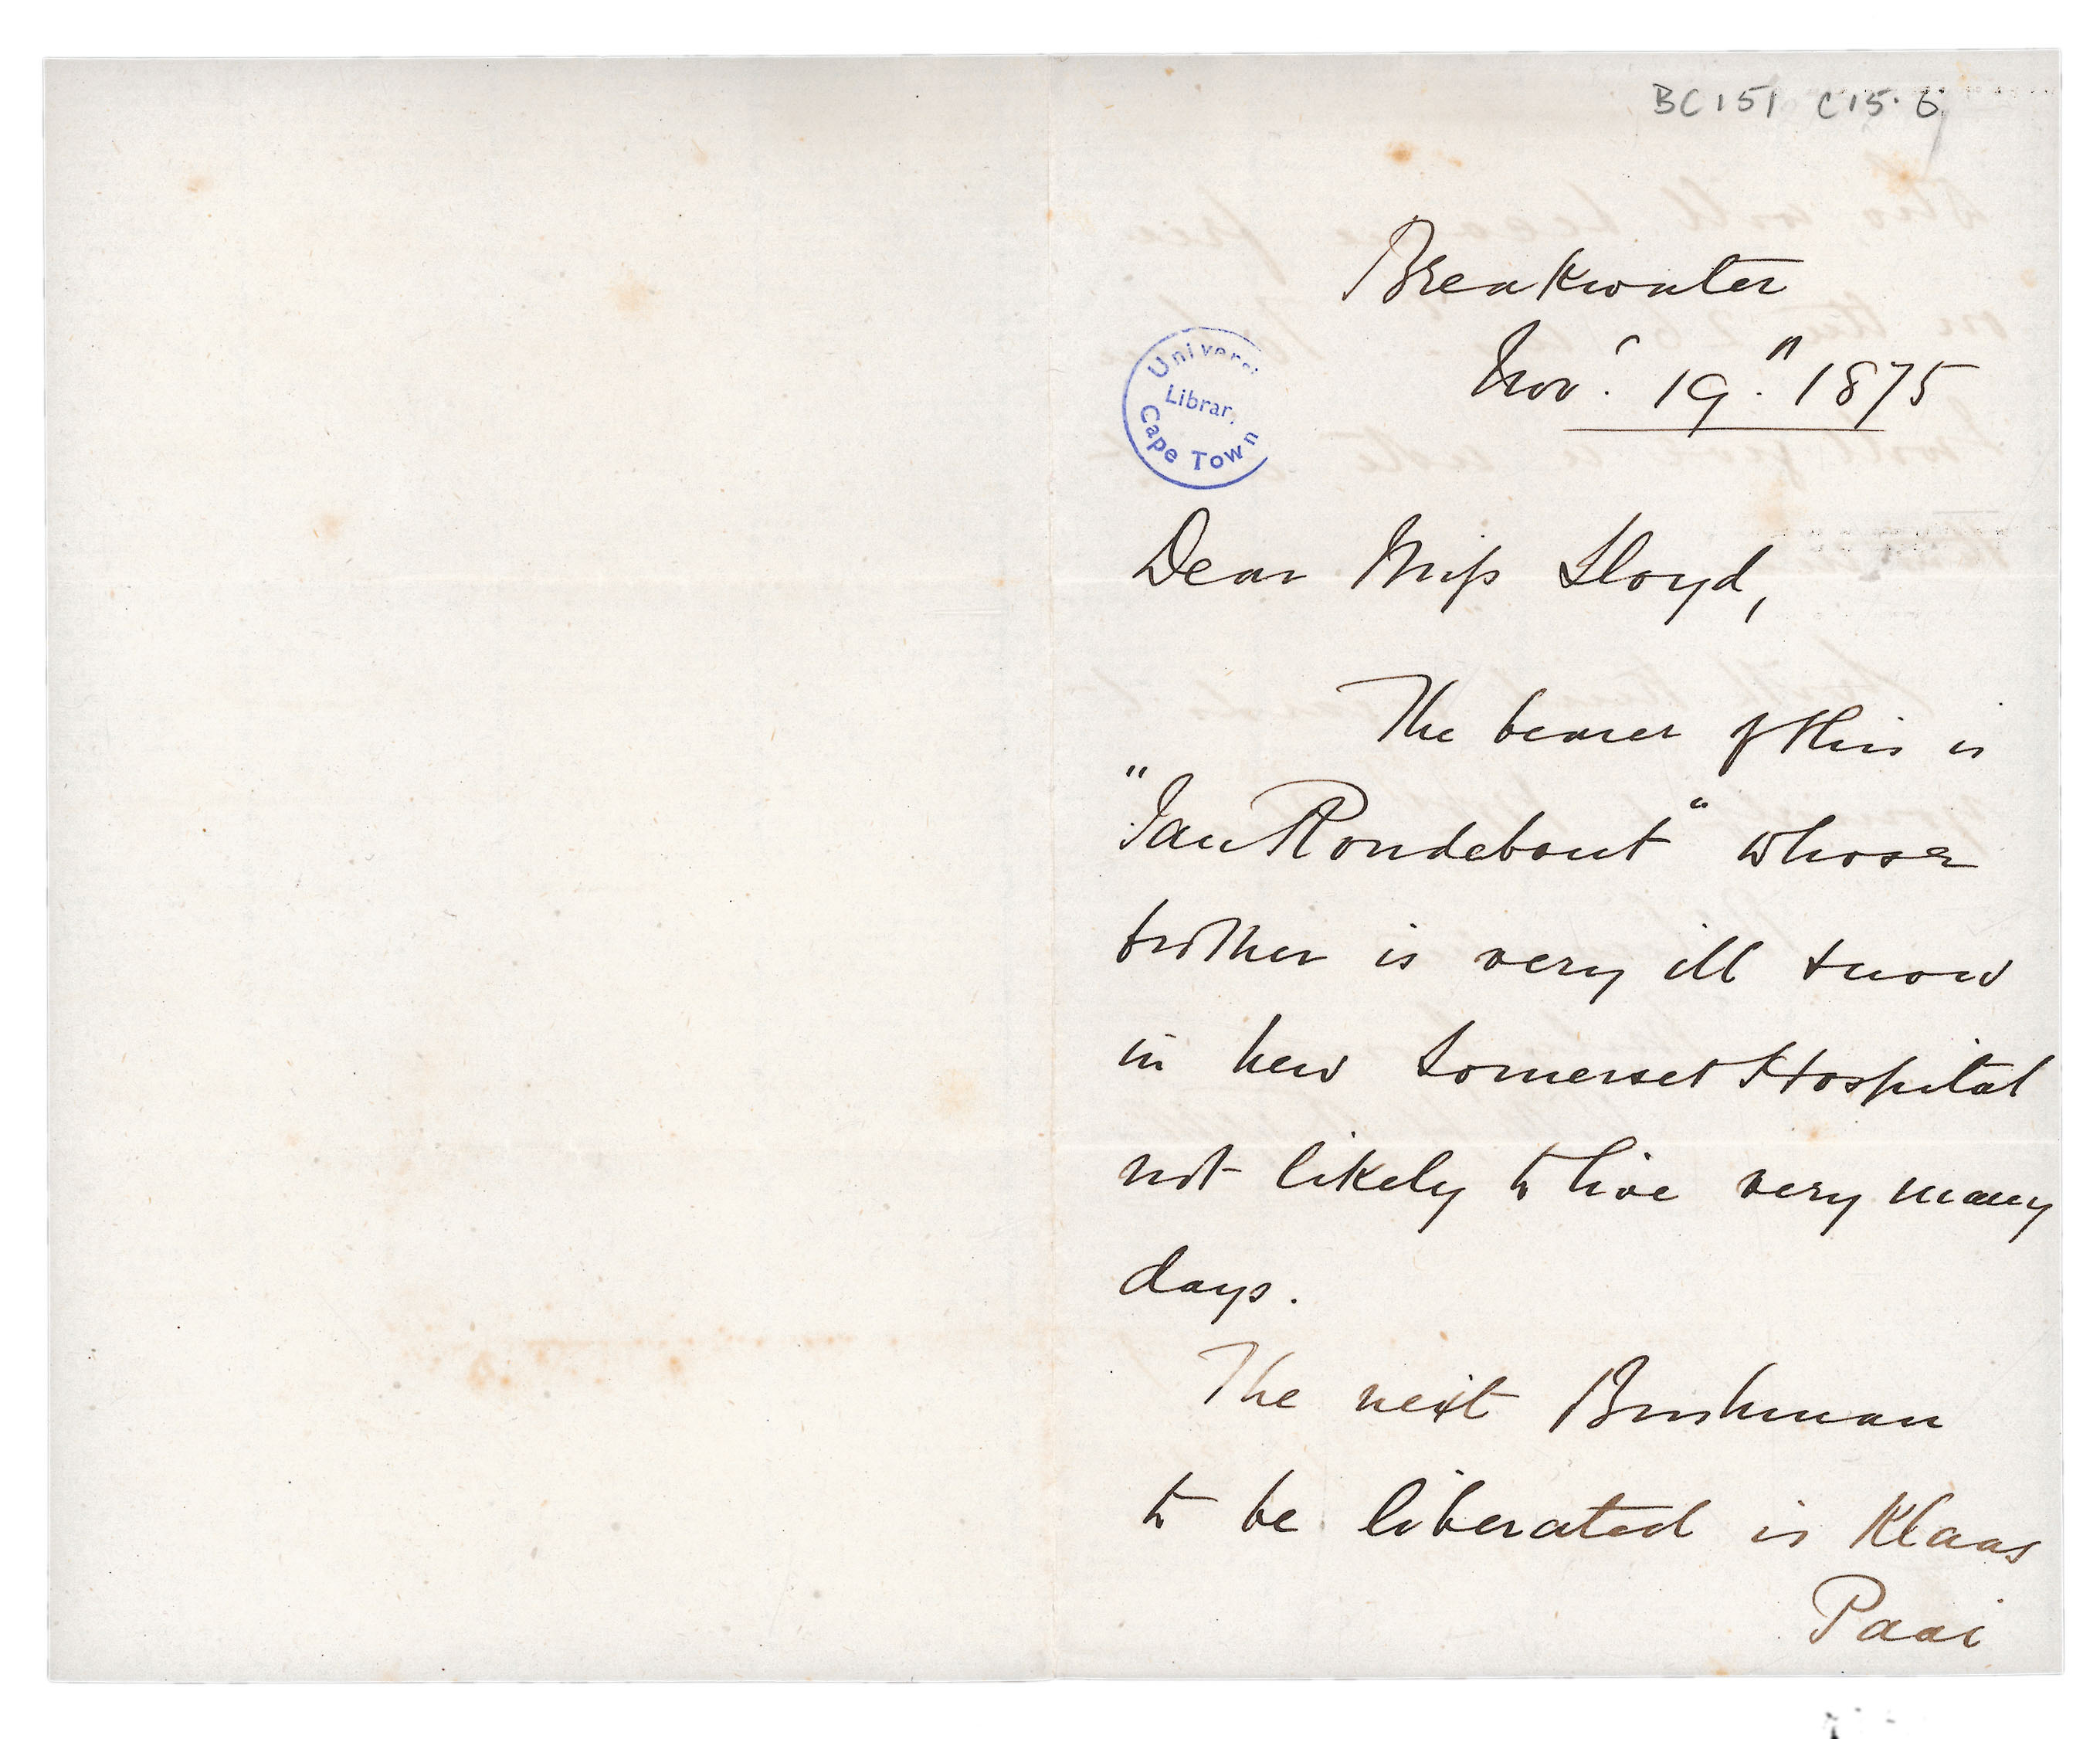 BC 151 C15.6
Breakwater
Nov.r 19.th 1875
Univers
Librar
Cape Town
Dear Miss Lloyd,
The bearer of this is
"Jan Rondebout" whose
brother is very ill & now
in new Somerset Hospital
not likely to live very many
days.
The next Bushman
to be liberated is Klaas
Paai